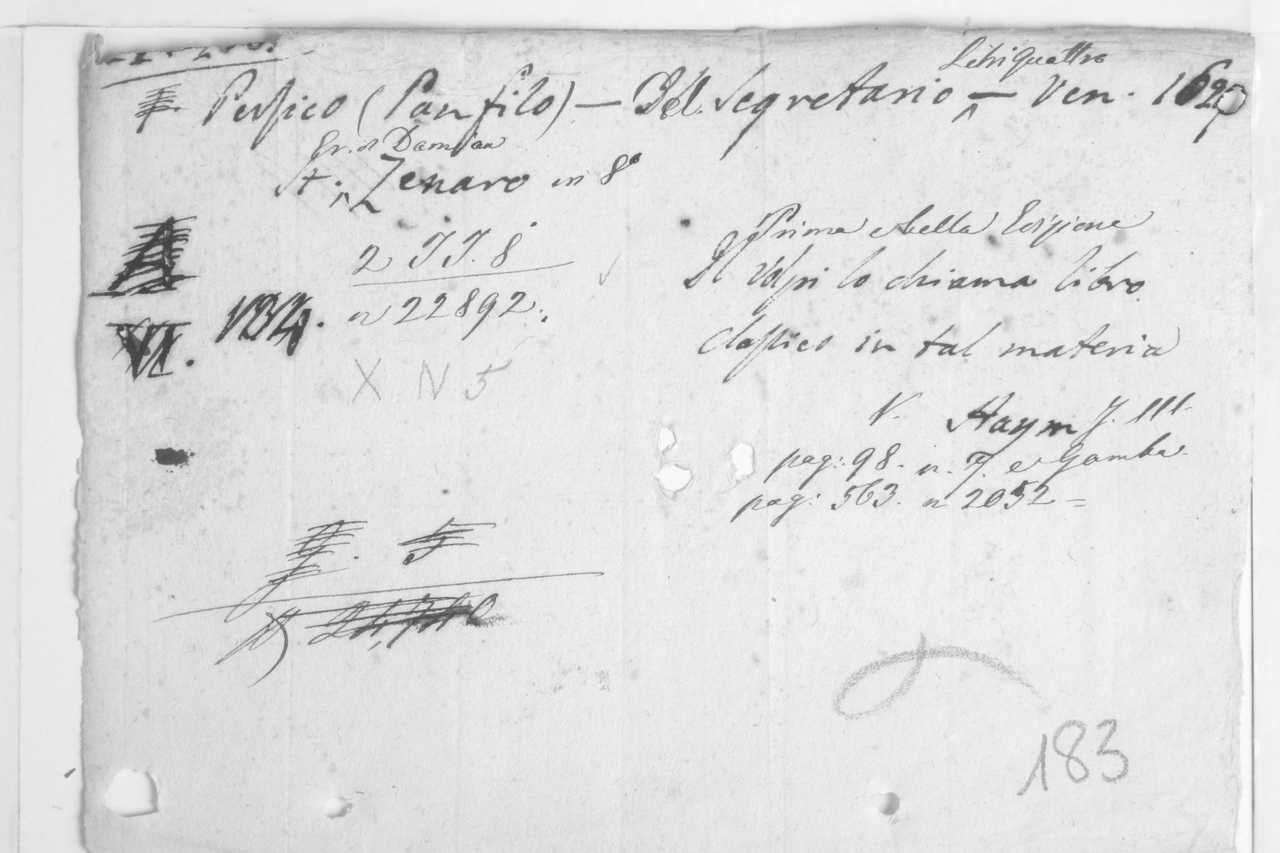 Libri Quattro
Persico (Panfilo) — Del Segretario ^ — Ven. 1629
Damian
Zenaro in 8°
2 JJ. 8
Prima e bella Edizione
Il Volpi lo chiama libro
classico in tal materia
n 22892.
VI.
X N 5
V. Haym T. III.
pag: 98. n. 7. e Gamba
pag: 563. n 2052 =
183